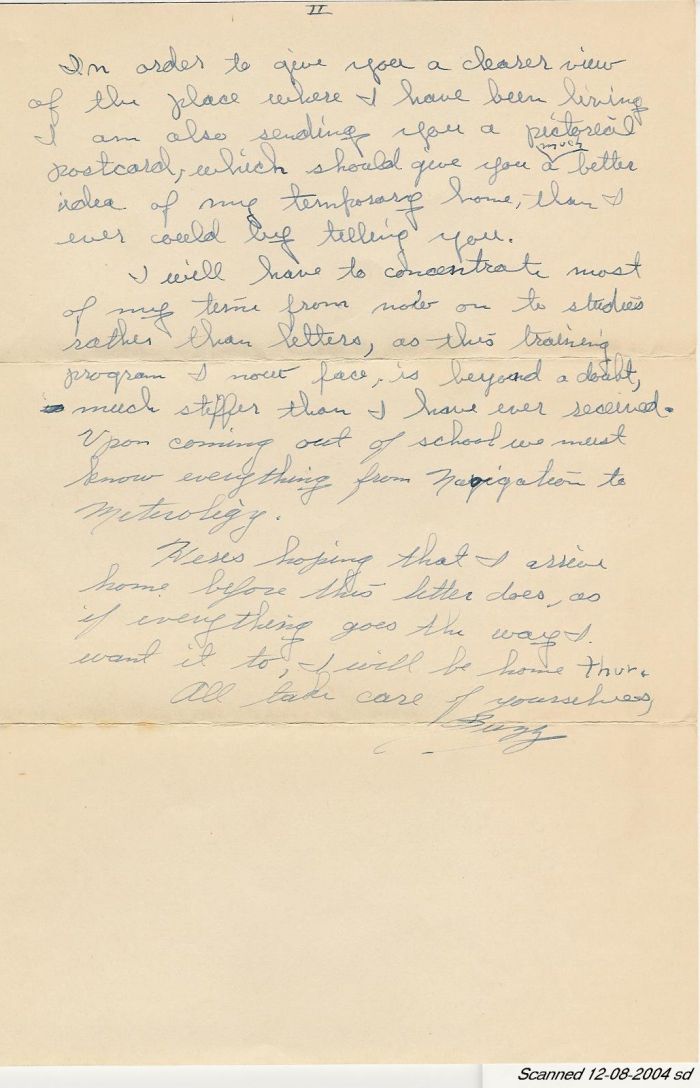 II
In order to give you a clearer view
of the place where I have been living
I am also sending you a pictorial
postcard, which should give you a much better
idea of my temporary home, than I
ever could by telling you.
I will have to concentrate most
of my time from now on to studies
rather than letters, as this training
program I now face, is beyond a doubt,
much stiffer than I have ever received.
Upon coming out of school we must
know everything from Navigation to
Meterology.
Heres hoping that I arrive
home before this letter does, as
if everything goes the way I
want it to, I will be home thur.
All take care of yourselves,
Buzz
Scanned 12-08-2004 sd